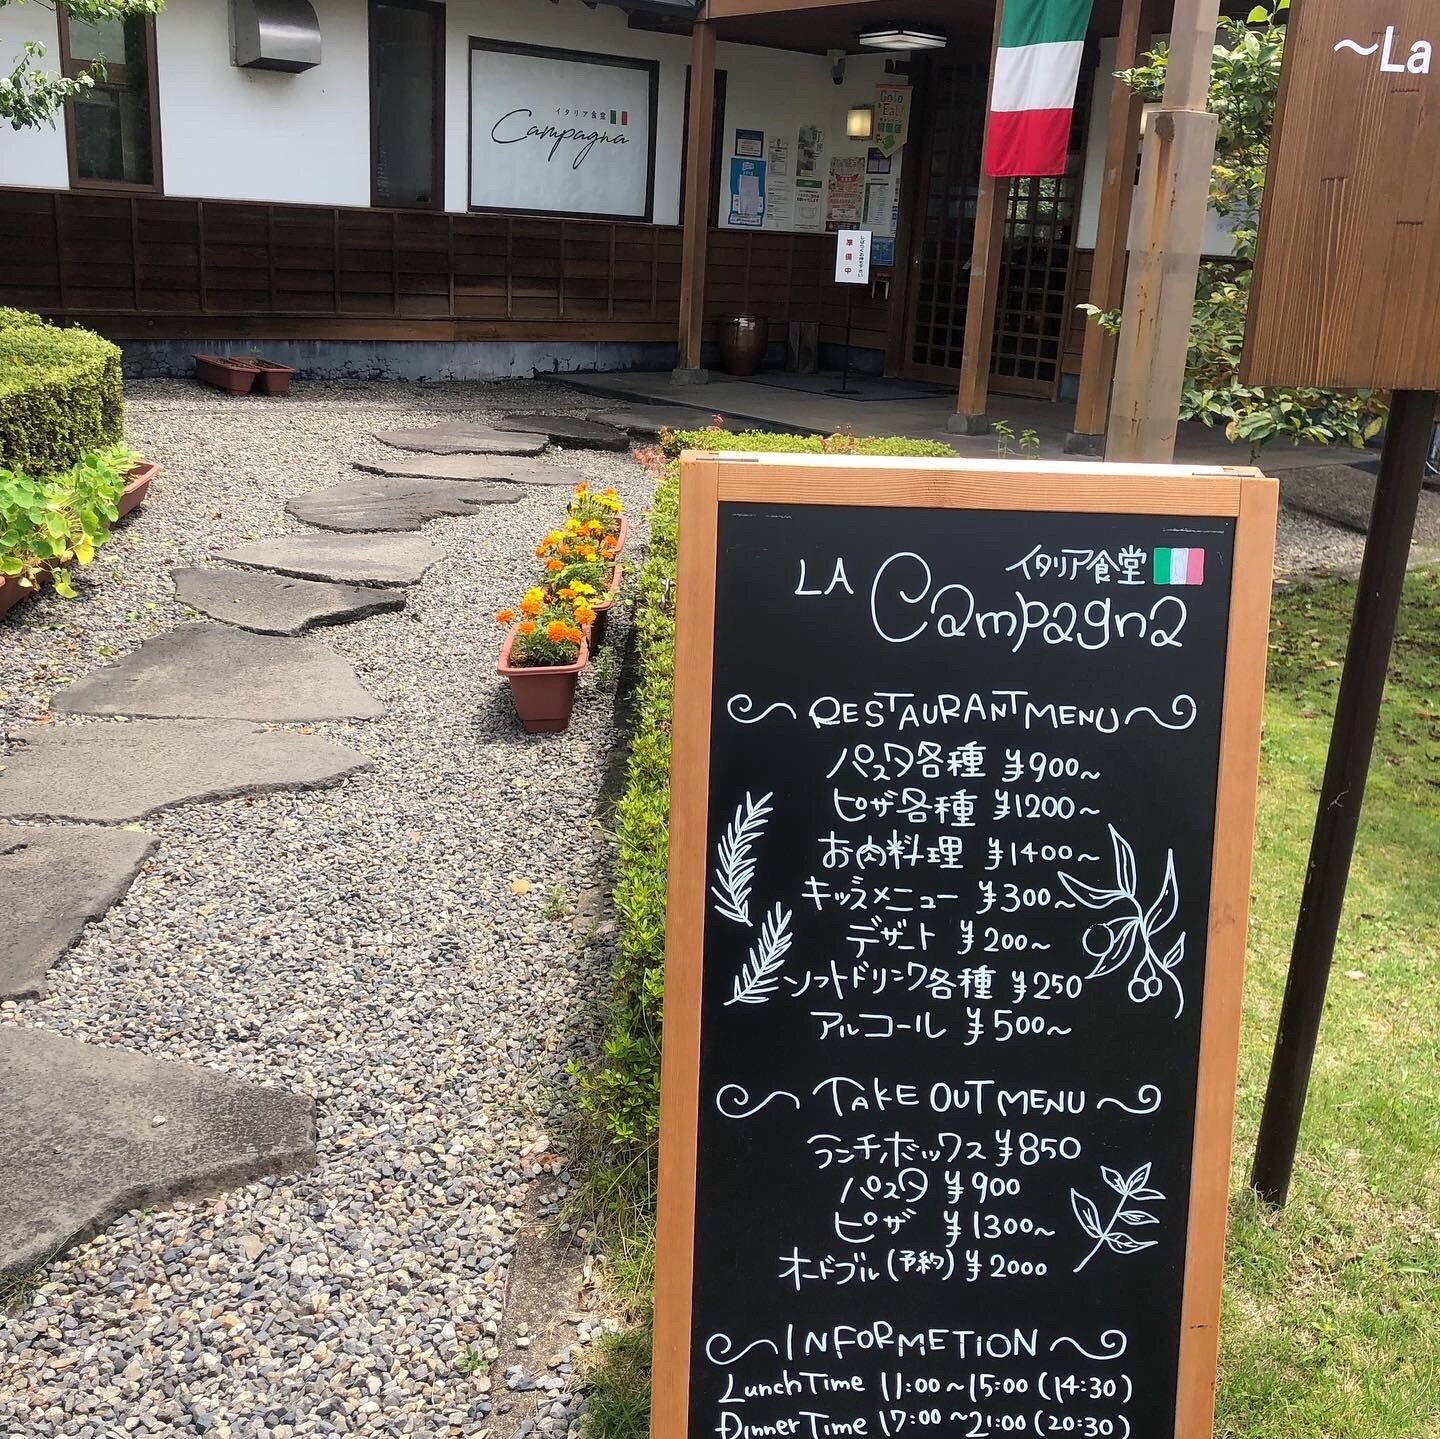 イタリア食堂
Campagna
GoTo
Eat!
しばらくお待ち下さい
準備中
~La
イタリア食堂
LA Campagna
RESTAURANT MENU
パスタ各種 ¥900~
ピザ各種 ¥1200~
お肉料理 ¥1400~
キッズメニュー ¥300~
デザート ¥200~
ソフトドリンク各種 ¥250
アルコール ¥500~
TAKE OUT MENU
ランチボックス ¥850
パスタ ¥900
ピザ ¥1300~
オードブル(予約) ¥2000
INFORMETION
Lunch Time 11:00~15:00 (14:30)
Dinner Time 17:00~21:00 (20:30)